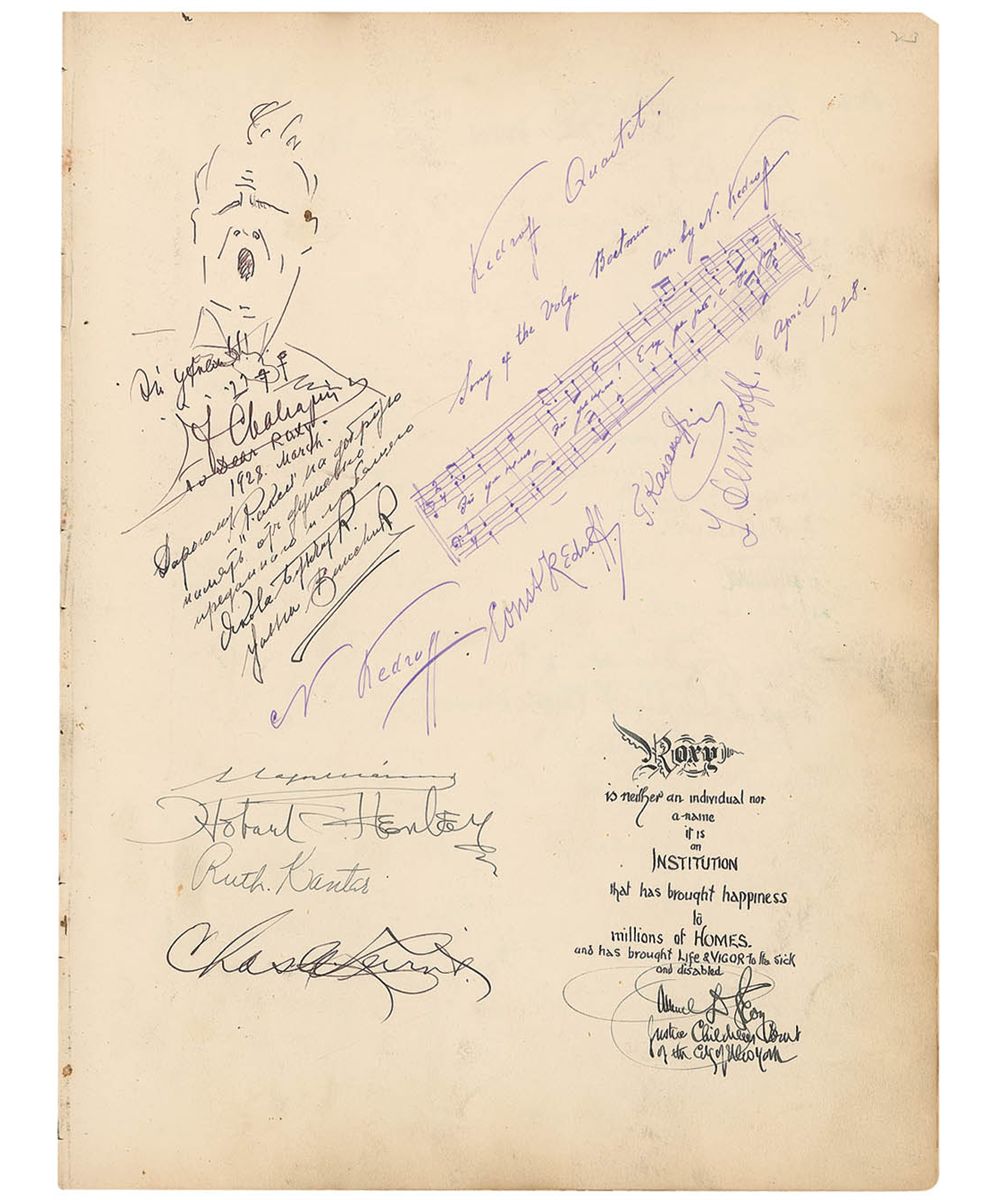 23
Эй ухнем!!!
F Chaliapin
To Dear Roxy
1928. March.
Дорогому "Рокси" на добрую
память от душевно
преданного и любящего
Yasha Bunchuk
Kedroff Quartet.
Song of the Volga Boatmen
arr. by N. Kedroff
Эй ухнем, Эй ухнем! Еще ра зик, е ще раз!
N. Kedroff
Const Kedroff
T. Kasakoff
I. Denissoff. 6 April
1928.
Hobart Henley
Ruth. Kantor
Chas
Roxy
is neither an individual nor
a name
it is
an
INSTITUTION
that has brought happiness
to
millions of HOMES.
and has brought LIFE & VIGOR to the sick
and disabled
Samuel D Levy
Justice Childrens Court
of the City of New York